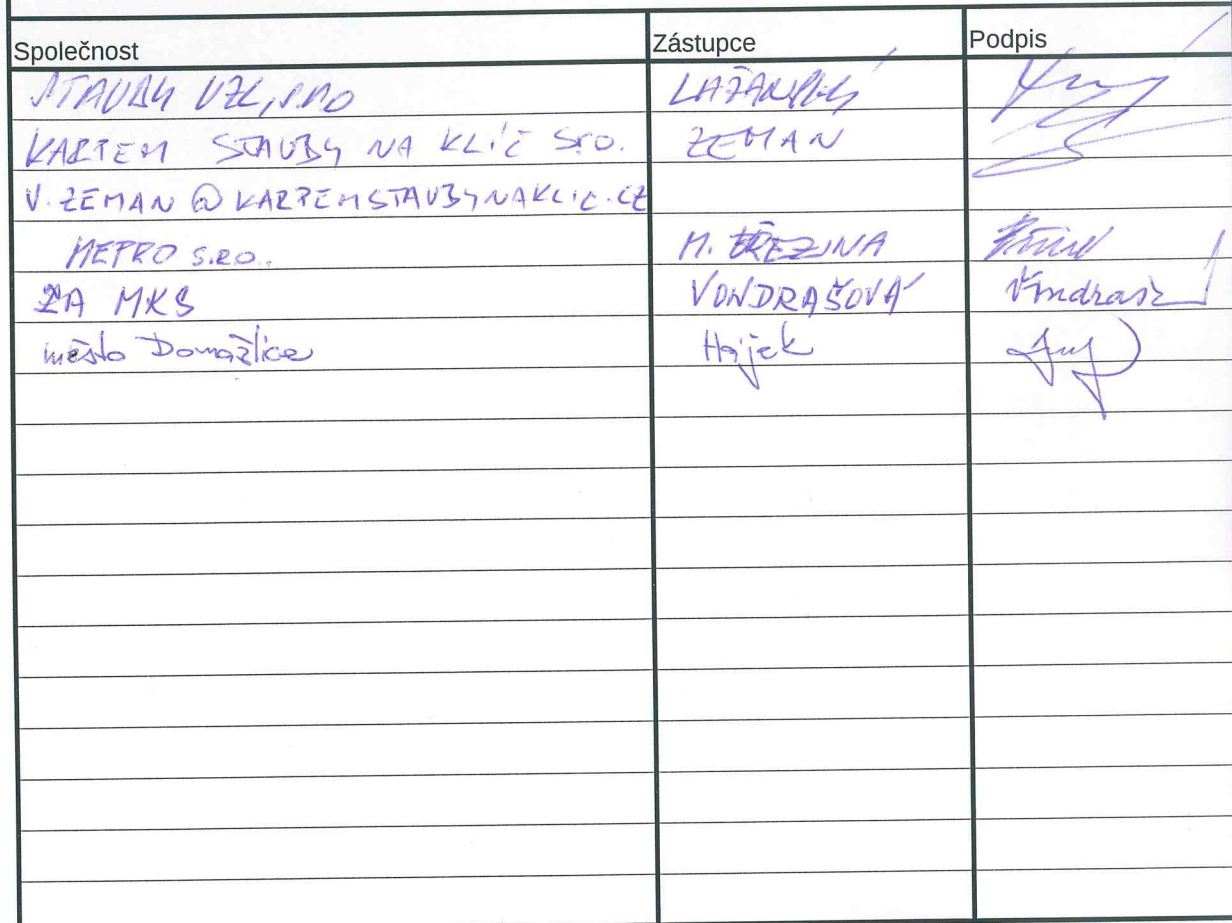 Společnost Zástupce Podpis
STAVBY VZL, SRO LAŽANSKÝ
KARTEM STAVBY NA KLÍČ SRO. ZEMAN
V.ZEMAN@KARTEMSTAVBYNAKLIC.CZ
METRO S.R.O. M. BŘEZINA
ZA MKS VONDRAŠOVÁ
město Domažlice Hájek